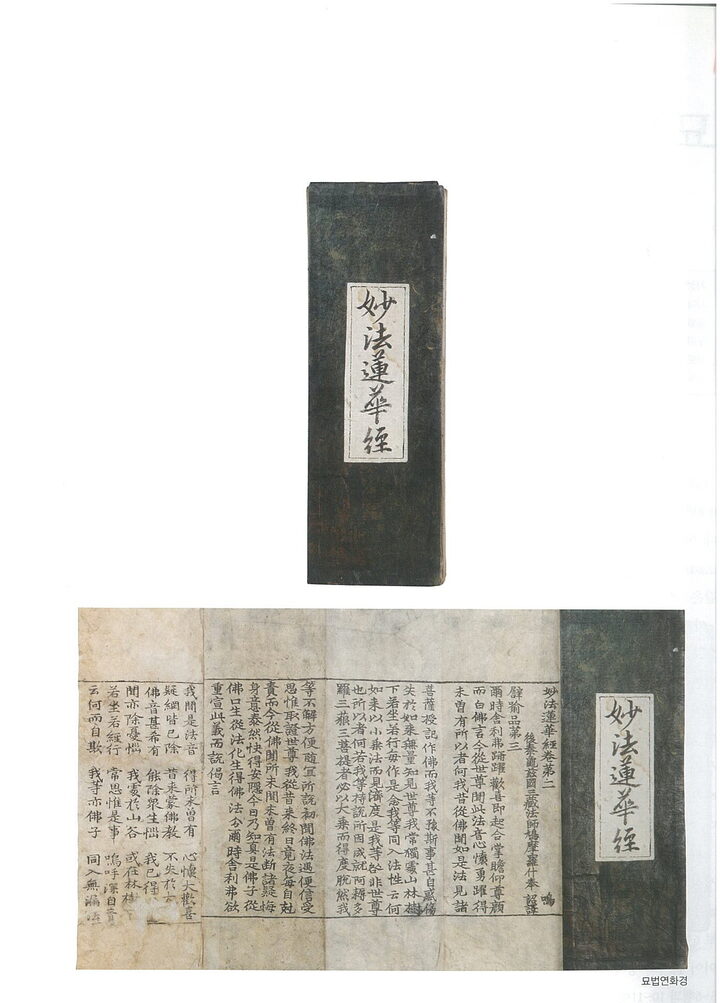 妙法蓮華經
妙法蓮華經
妙法蓮華經卷第二 鳴
後秦龜茲國三藏法師鳩摩羅什奉 詔譯
譬喻品第三
爾時舍利弗踊躍歡喜即起合掌瞻仰尊顏
而白佛言今從世尊聞此法音心懷勇躍得
未曾有所以者何我昔從佛聞如是法見諸
菩薩授記作佛而我等不豫斯事甚自感傷
失於如來無量知見世尊我常獨處山林樹
下若坐若行每作是念我等同入法性云何
如來以小乘法而見濟度是我等咎非世尊
也所以者何若我等待說所因成就阿耨多
羅三藐三菩提者必以大乘而得度脫然我
等不解方便隨宜所說初聞佛法遇便信受
思惟取證世尊我從昔來終日竟夜每自剋
責而今從佛聞所未聞未曾有法斷諸疑悔
身意泰然快得安隱今日乃知真是佛子從
佛口生從法化生得佛法分爾時舍利弗欲
重宣此義而說偈言
我聞是法音 得所未曾有 心懷大歡喜
疑網皆已除 昔來蒙佛教 不失於
佛音甚希有 能除眾生惱 我已得
聞亦除憂惱 我處於山谷 或在林樹
若坐若經行 常思惟是事 嗚呼深自責
云何而自欺 我等亦佛子 同入無漏法
묘법연화경